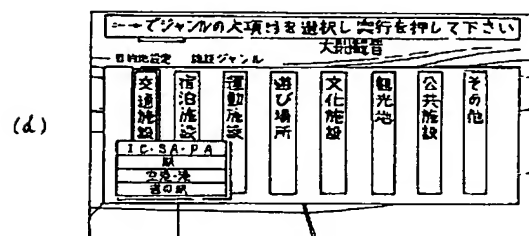 (d)
でジャンルの大項目を選択し実行を押して下さい
大船観音
目的地設定 施設ジャンル
交通施設
宿泊施設
運動施設
遊び場所
文化施設
観光地
公共施設
その他
IC・SA・PA
駅
空港・港
道の駅